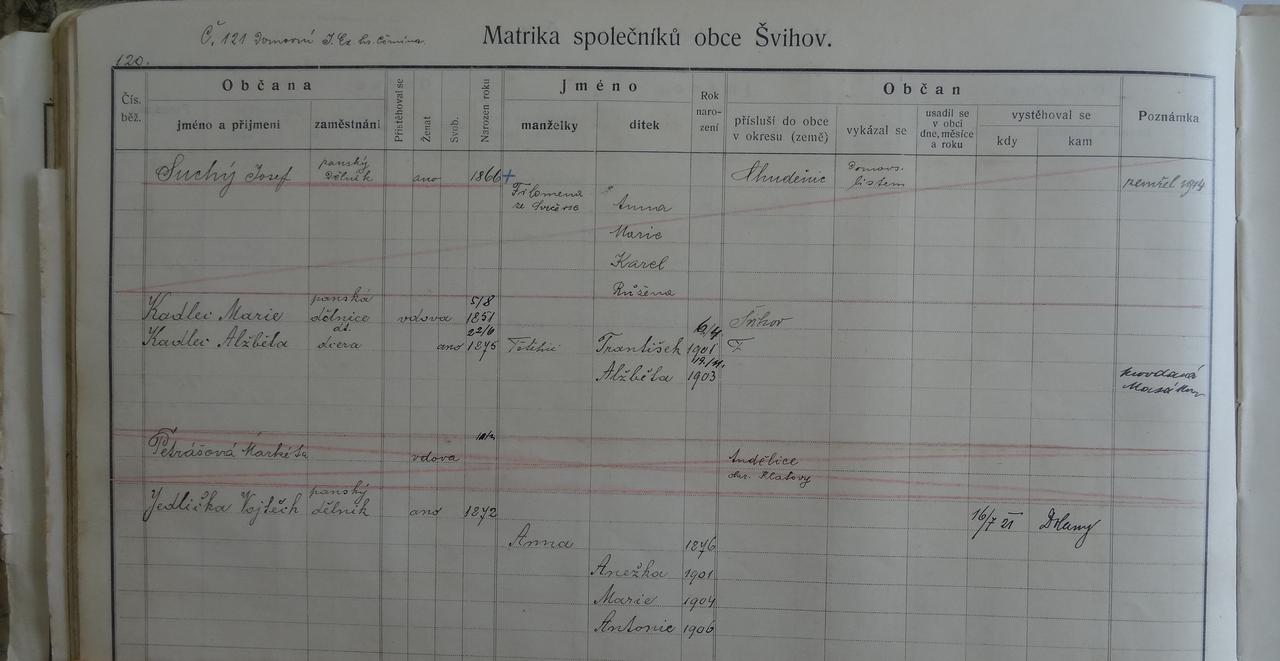 Č. 121 Domovní
Matrika společníků obce Švihov.
120.
Občana
Jméno
Občan
Čís. běž.
jméno a přijmení
zaměstnání
Přistěhoval se
Ženat
Svob.
Narozen roku
manželky
dítek
Rok naro- zení
přísluší do obce v okresu (země)
vykázal se
usadil se v obci dne, měsíce a roku
vystěhoval se
kdy
kam
Poznámka
Suchý Josef panský dělník ano 1866 + Chudenic Domovs. listem zemřel 1914
Filomena ze
Anna
Marie
Karel
Růžena
Kadlec Marie panská dělnice vdova 5/8 1851 Švihov
Kadlec Alžběta dt. dcera ano 22/6 1875 František 1901
Alžběta 1903 provdaná
Petrášová Markéta vdova Andělice okr. Klatovy
Jedlička Vojtěch panský dělník ano 1872 16/7 21 Dolany
Anna 1876
Anežka 1901
Marie 1904
Antonie 1906